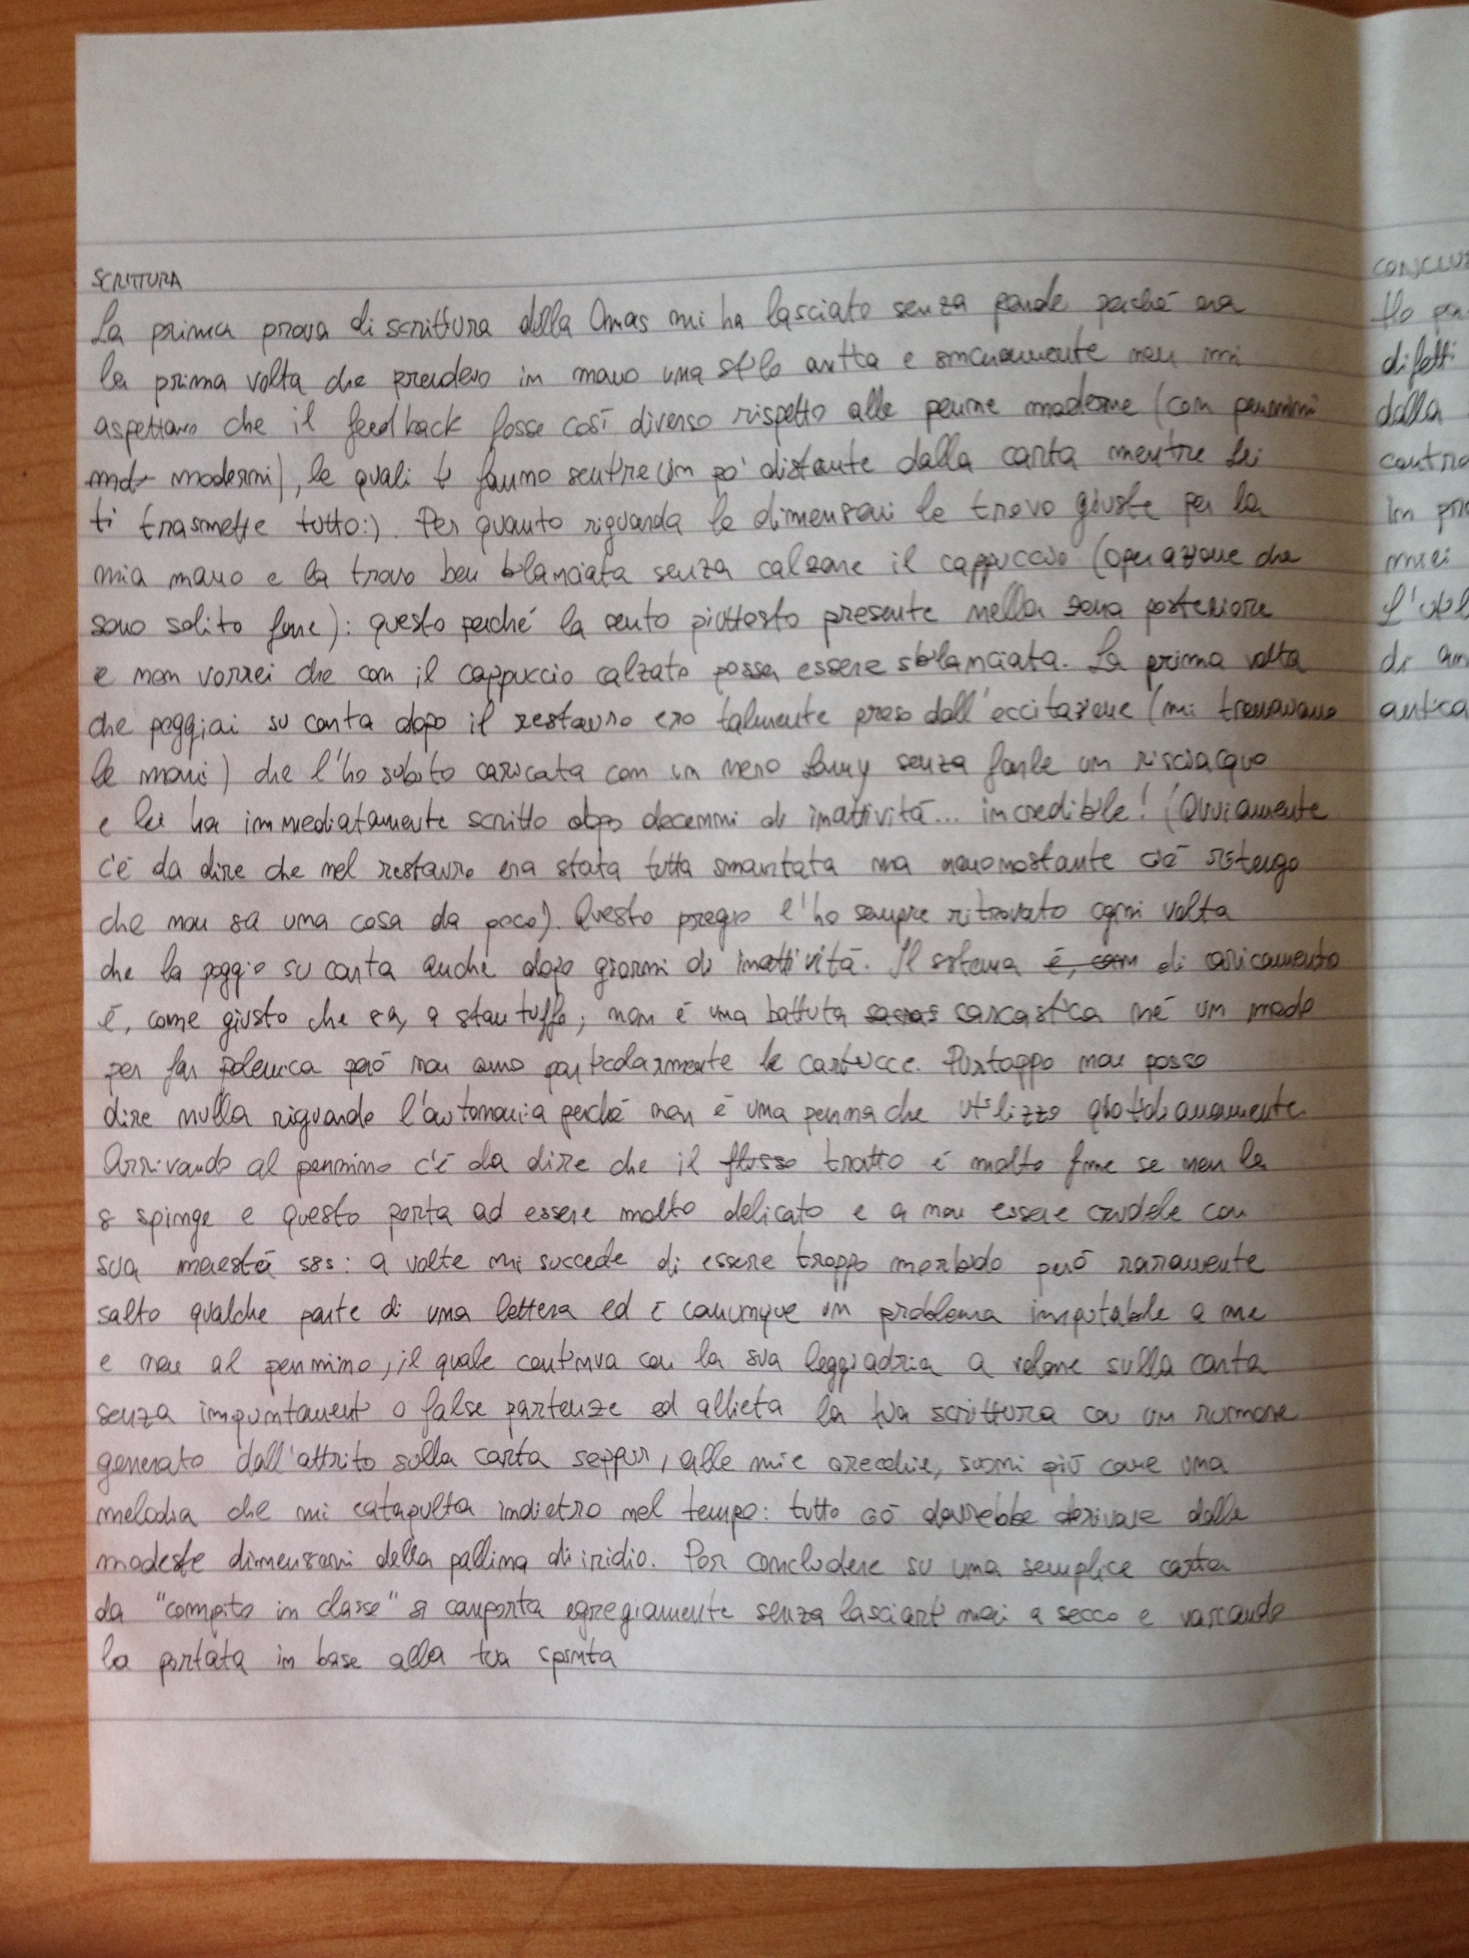 SCRITTURA
La prima prova di scrittura della Omas mi ha lasciato senza parole perché era
la prima volta che prendevo in mano una stilo antica e sinceramente non mi
aspettavo che il feedback fosse così diverso rispetto alle penne moderne (con pennini
moderni), le quali ti fanno sentire un po' distante dalla carta mentre lei
ti trasmette tutto:). Per quanto riguarda le dimensioni le trovo giuste per la
mia mano e la trovo ben bilanciata senza calzare il cappuccio (operazione che
sono solito fare): questo perché la sento piuttosto presente nella zona posteriore
e non vorrei che con il cappuccio calzato possa essere sbilanciata. La prima volta
che poggiai su carta dopo il restauro ero talmente preso dall'eccitazione (mi tremavano
le mani) che l'ho subito caricata con un nero Lamy senza farle un risciacquo
e lei ha immediatamente scritto dopo decenni di inattività... incredibile! (Ovviamente
c'è da dire che nel restauro era stata tutta smontata ma nonostante ciò ritengo
che non sia una cosa da poco). Questo pregio l'ho sempre ritrovato ogni volta
che la poggio su carta anche dopo giorni di inattività. Il sistema è, com di caricamento
è, come giusto che sia, a stantuffo; non è una battuta sarcastica né un modo
per far polemica però non amo particolarmente le cartucce. Purtroppo non posso
dire nulla riguardo l'autonomia perché non è una penna che utilizzo quotidianamente.
Arrivando al pennino c'è da dire che il flusso tratto è molto fine se non la
si spinge e questo porta ad essere molto delicato e a non essere crudele con
sua maestà 585: a volte mi succede di essere troppo morbido però raramente
salto qualche parte di una lettera ed è comunque un problema imputabile a me
e non al pennino, il quale continua con la sua leggiadria a volare sulla carta
senza impuntamenti o false partenze ed allieta la tua scrittura con un rumore
generato dall'attrito sulla carta seppur, alle mie orecchie, suoni più come una
melodia che mi catapulta indietro nel tempo: tutto ciò dovrebbe derivare dalle
modeste dimensioni della pallina di iridio. Per concludere su una semplice carta
da "compito in classe" si comporta egregiamente senza lasciarti mai a secco e variando
la portata in base alla tua spinta
difetti
dalla
contro
miei
di
antica